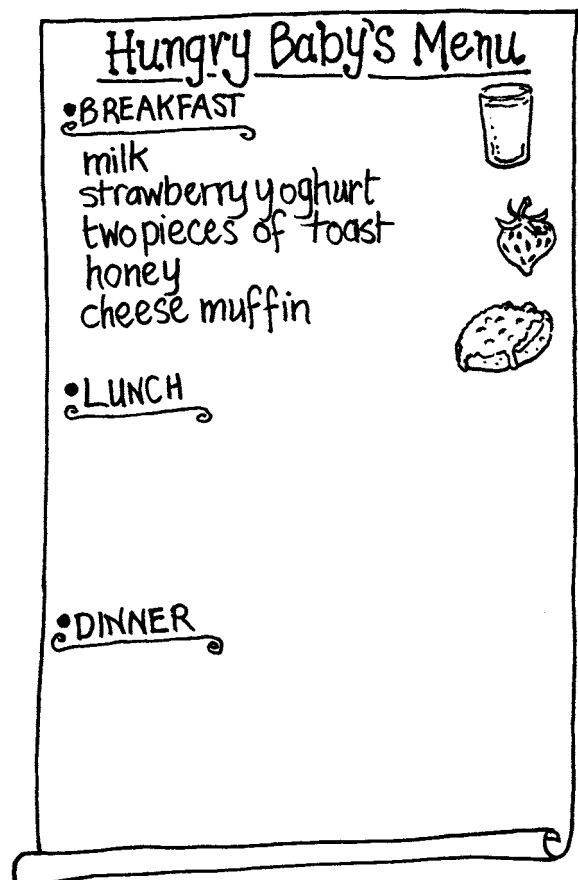 Hungry Baby's Menu
•BREAKFAST
milk
strawberry yoghurt
two pieces of toast
honey
cheese muffin
•LUNCH
•DINNER